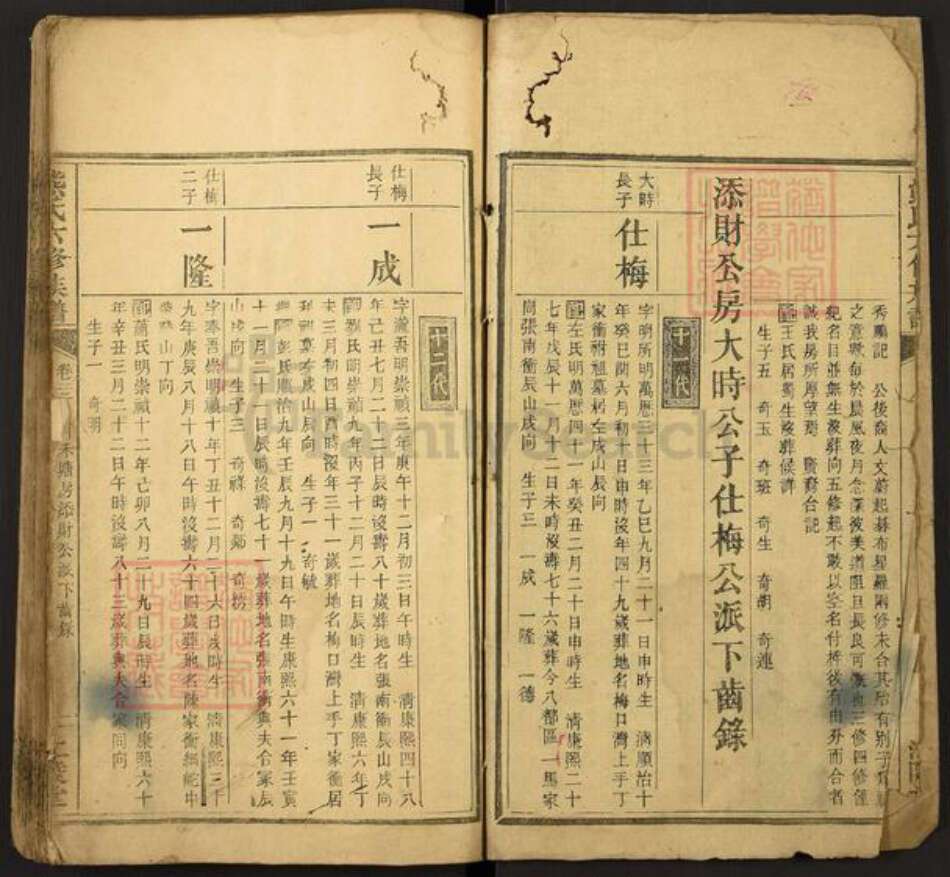 秀鵬記 公後裔人文蔚起碁布星羅兩修未合其殆有別子
之意歟每於晨風夜月念
紀名目並無生歿葬向五修起不敢以空名付梓後有由升而合者
誠我房所厚望焉 賡裔台記
王氏居蜀生歿葬候詳
生子五 奇玉 奇班 奇生 奇朝 奇連
添財公房大時公子仕梅公派下齒錄
十一代
大時長子
仕梅
字明所明萬曆三十三年乙巳九月二十一日申時生 清順治十
年癸巳閏六月初十日申時沒年四十九歲葬地名梅口灣上手丁
家衝祔祖墓居左戌山辰向
左氏明萬曆四十一年癸丑二月二十日申時生 清康熙二十
七年戊辰十一月十二日未時沒壽七十六歲葬今八都區一馬家
岡張南衝辰山戌向 生子三 一成 一隆 一德
十二代
仕梅長子
一成
字 吾明崇禎三年庚午十二月初三日午時生 清康熙四十八
年己丑七月二十二日辰時沒壽八十歲葬地名張南衝辰山戌向
劉氏明崇禎九年丙子十二月二十日辰時生 清康熙六年丁
未三月初四日酉時沒年三十一歲葬地名梅口灣上手丁家衝居
祖墓右戌山辰向 生子一 奇毓
彭氏順治九年壬辰九月十九日午時生康熙六十一年壬寅
十一月二十一日辰時沒壽七十一歲葬地名張南衝與夫合冢辰
山戌向 生子三 奇祿 奇鄒 奇榜
仕梅二子
一隆
字奉吾崇明禎十年丁丑十二月二十六日戌時生 清康熙三十
九年庚辰八月十八日午時沒壽六十四歲葬地名陳家衝 蛇中
山丁向
蕭氏明崇禎十二年己卯八月二十九日辰時生 清康熙六十
年辛丑三月二十二日午時沒壽八十三歲葬與夫合冢同向
生子一 奇明
熊氏六修族譜 卷三 木塘房添財公派下齒錄
FamilySearch